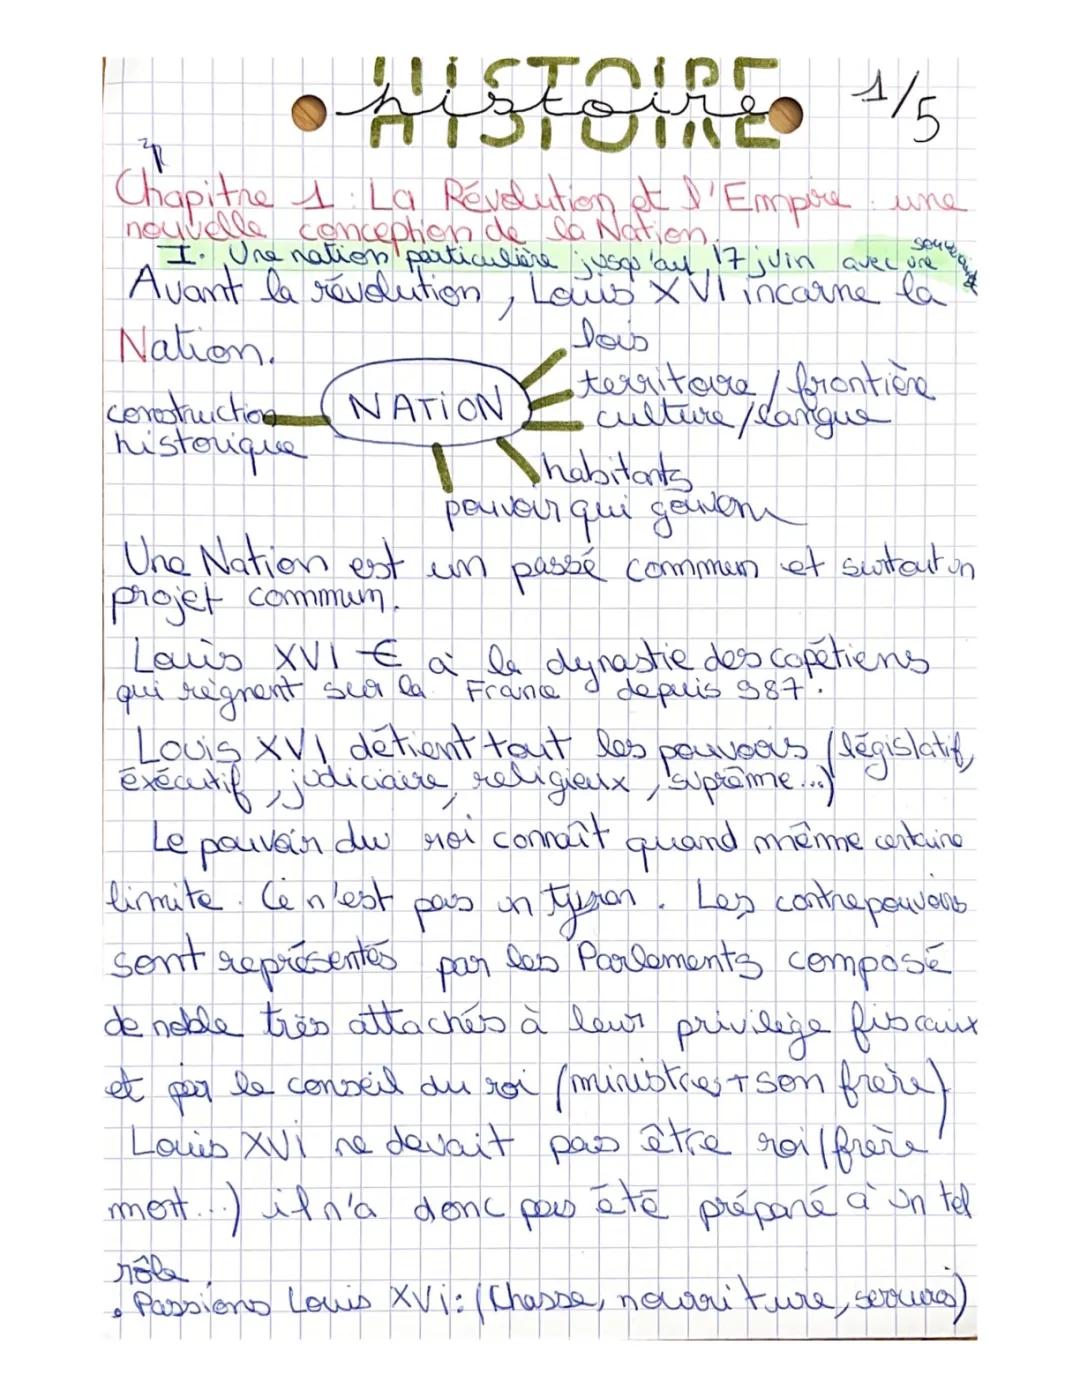 HISTOIRE
histoire
1/5
Chapitre 1 : La Révolution et l'Empire : une
nouvelle conception de la Nation.
I. Une nation particulière jusqu'au 17 juin avec une
Avant la révolution, Louis XVI incarne la
Nation.
lois
territoire / frontière
culture / langue
NATION
construction
historique
habitants
pouvoir qui gouverne
Une Nation est un passé commun et surtout un
projet commun.
Louis XVI € à la dynastie des capétiens
qui règnent sur la France depuis 987.
Louis XVI détient tout les pouvoirs (législatif,
éxécutif, judiciaire, religieux, suprême...)
Le pouvoir du roi connaît quand même certaine
limite. Ce n'est pas un tyran. Les contrepouvoirs
sont représentés par les Parlements composé
de noble très attachés à leur privilège fiscaux
et par le conseil du roi (ministres + son frère)
Louis XVI ne devait pas être roi (frère
mort...) il n'a donc pas été préparé à un tel
rôle.
• Passions Louis XVI : (Chasse, nourriture, serrures)